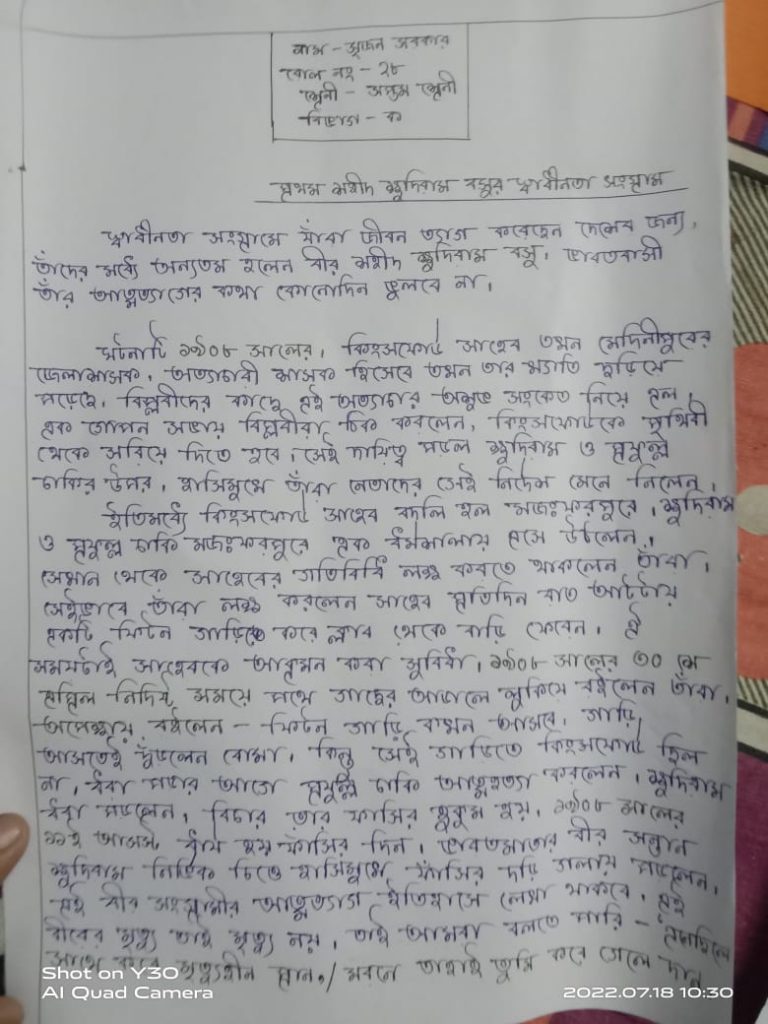 নাম - সুজন সরকার
রোল নং - ২৮
শ্রেনী - অষ্টম শ্রেনী
বিভাগ - ক
প্রথম শহীদ ক্ষুদিরাম বসুর স্বাধীনতা সংগ্রাম
স্বাধীনতা সংগ্রামে যাঁরা জীবন ত্যাগ করেছেন দেশের জন্য,
তাঁদের মধ্যে অন্যতম হলেন বীর শহীদ ক্ষুদিরাম বসু। ভারতবাসী
তাঁর আত্মত্যাগের কথা কোনোদিন ভুলবে না।
ঘটনাটি ১৯০৮ সালের। কিংসফোর্ড সাহেব তখন মেদিনীপুরের
জেলাশাসক। অত্যাচারী শাসক হিসেবে তখন তার খ্যাতি ছড়িয়ে
পড়েছে। বিপ্লবীদের কাছে এই অত্যাচার অশুভ সংকেত নিয়ে এল।
এক গোপন সভায় বিপ্লবীরা ঠিক করলেন, কিংসফোর্ডকে পৃথিবী
থেকে সরিয়ে দিতে হবে। সেই দায়িত্ব পড়ল ক্ষুদিরাম ও প্রফুল্ল
চাকির উপর। হাসিমুখে তাঁরা নেতাদের সেই নির্দেশ মেনে নিলেন।
ইতিমধ্যে কিংসফোর্ড সাহেব বদলি হল মজঃফরপুরে। ক্ষুদিরাম
ও প্রফুল্ল চাকি মজঃফরপুরে এক ধর্মশালায় এসে উঠলেন।
সেখান থেকে সাহেবের গতিবিধি লক্ষ করতে থাকলেন তাঁরা।
সেইভাবে তাঁরা লক্ষ করলেন সাহেব প্রতিদিন রাত আটটায়
একটি ফিটন গাড়িতে করে ক্লাব থেকে বাড়ি ফেরেন। ঐ
সময়টাই সাহেবকে আক্রমন করা সুবিধা। ১৯০৮ সালের ৩০ শে
এপ্রিল নির্দিষ্ট সময়ে পথে গাছের আড়ালে লুকিয়ে রইলেন তাঁরা।
অপেক্ষায় রইলেন - ফিটন গাড়ি কখন আসবে। গাড়ি
আসতেই ছুঁড়লেন বোমা। কিন্তু সেই গাড়িতে কিংসফোর্ড ছিল
না। ধরা পড়ার আগে প্রফুল্ল চাকি আত্মহত্যা করলেন। ক্ষুদিরাম
ধরা পড়লেন। বিচার তার ফাসির হুকুম হয়। ১৯০৮ সালের
১১ই আগস্ট ধার্য হয় ফাঁসির দিন। ভারতমাতার বীর সন্তান
ক্ষুদিরাম নির্ভিক চিত্তে হাসিমুখে ফাঁসির দড়ি গলায় পড়লেন।
এই বীর সংগ্রামীর আত্মত্যাগ ইতিহাসে লেখা থাকবে। এই
বীরের মৃত্যু তাই মৃত্যু নয়। তাই আমরা বলতে পারি - এনেছিলে
সাথে করে মৃত্যুহীন প্রান।/ মরনে তাহাই তুমি করে গেলে দান
Shot on Y30
AI Quad Camera
2022.07.18 10:30